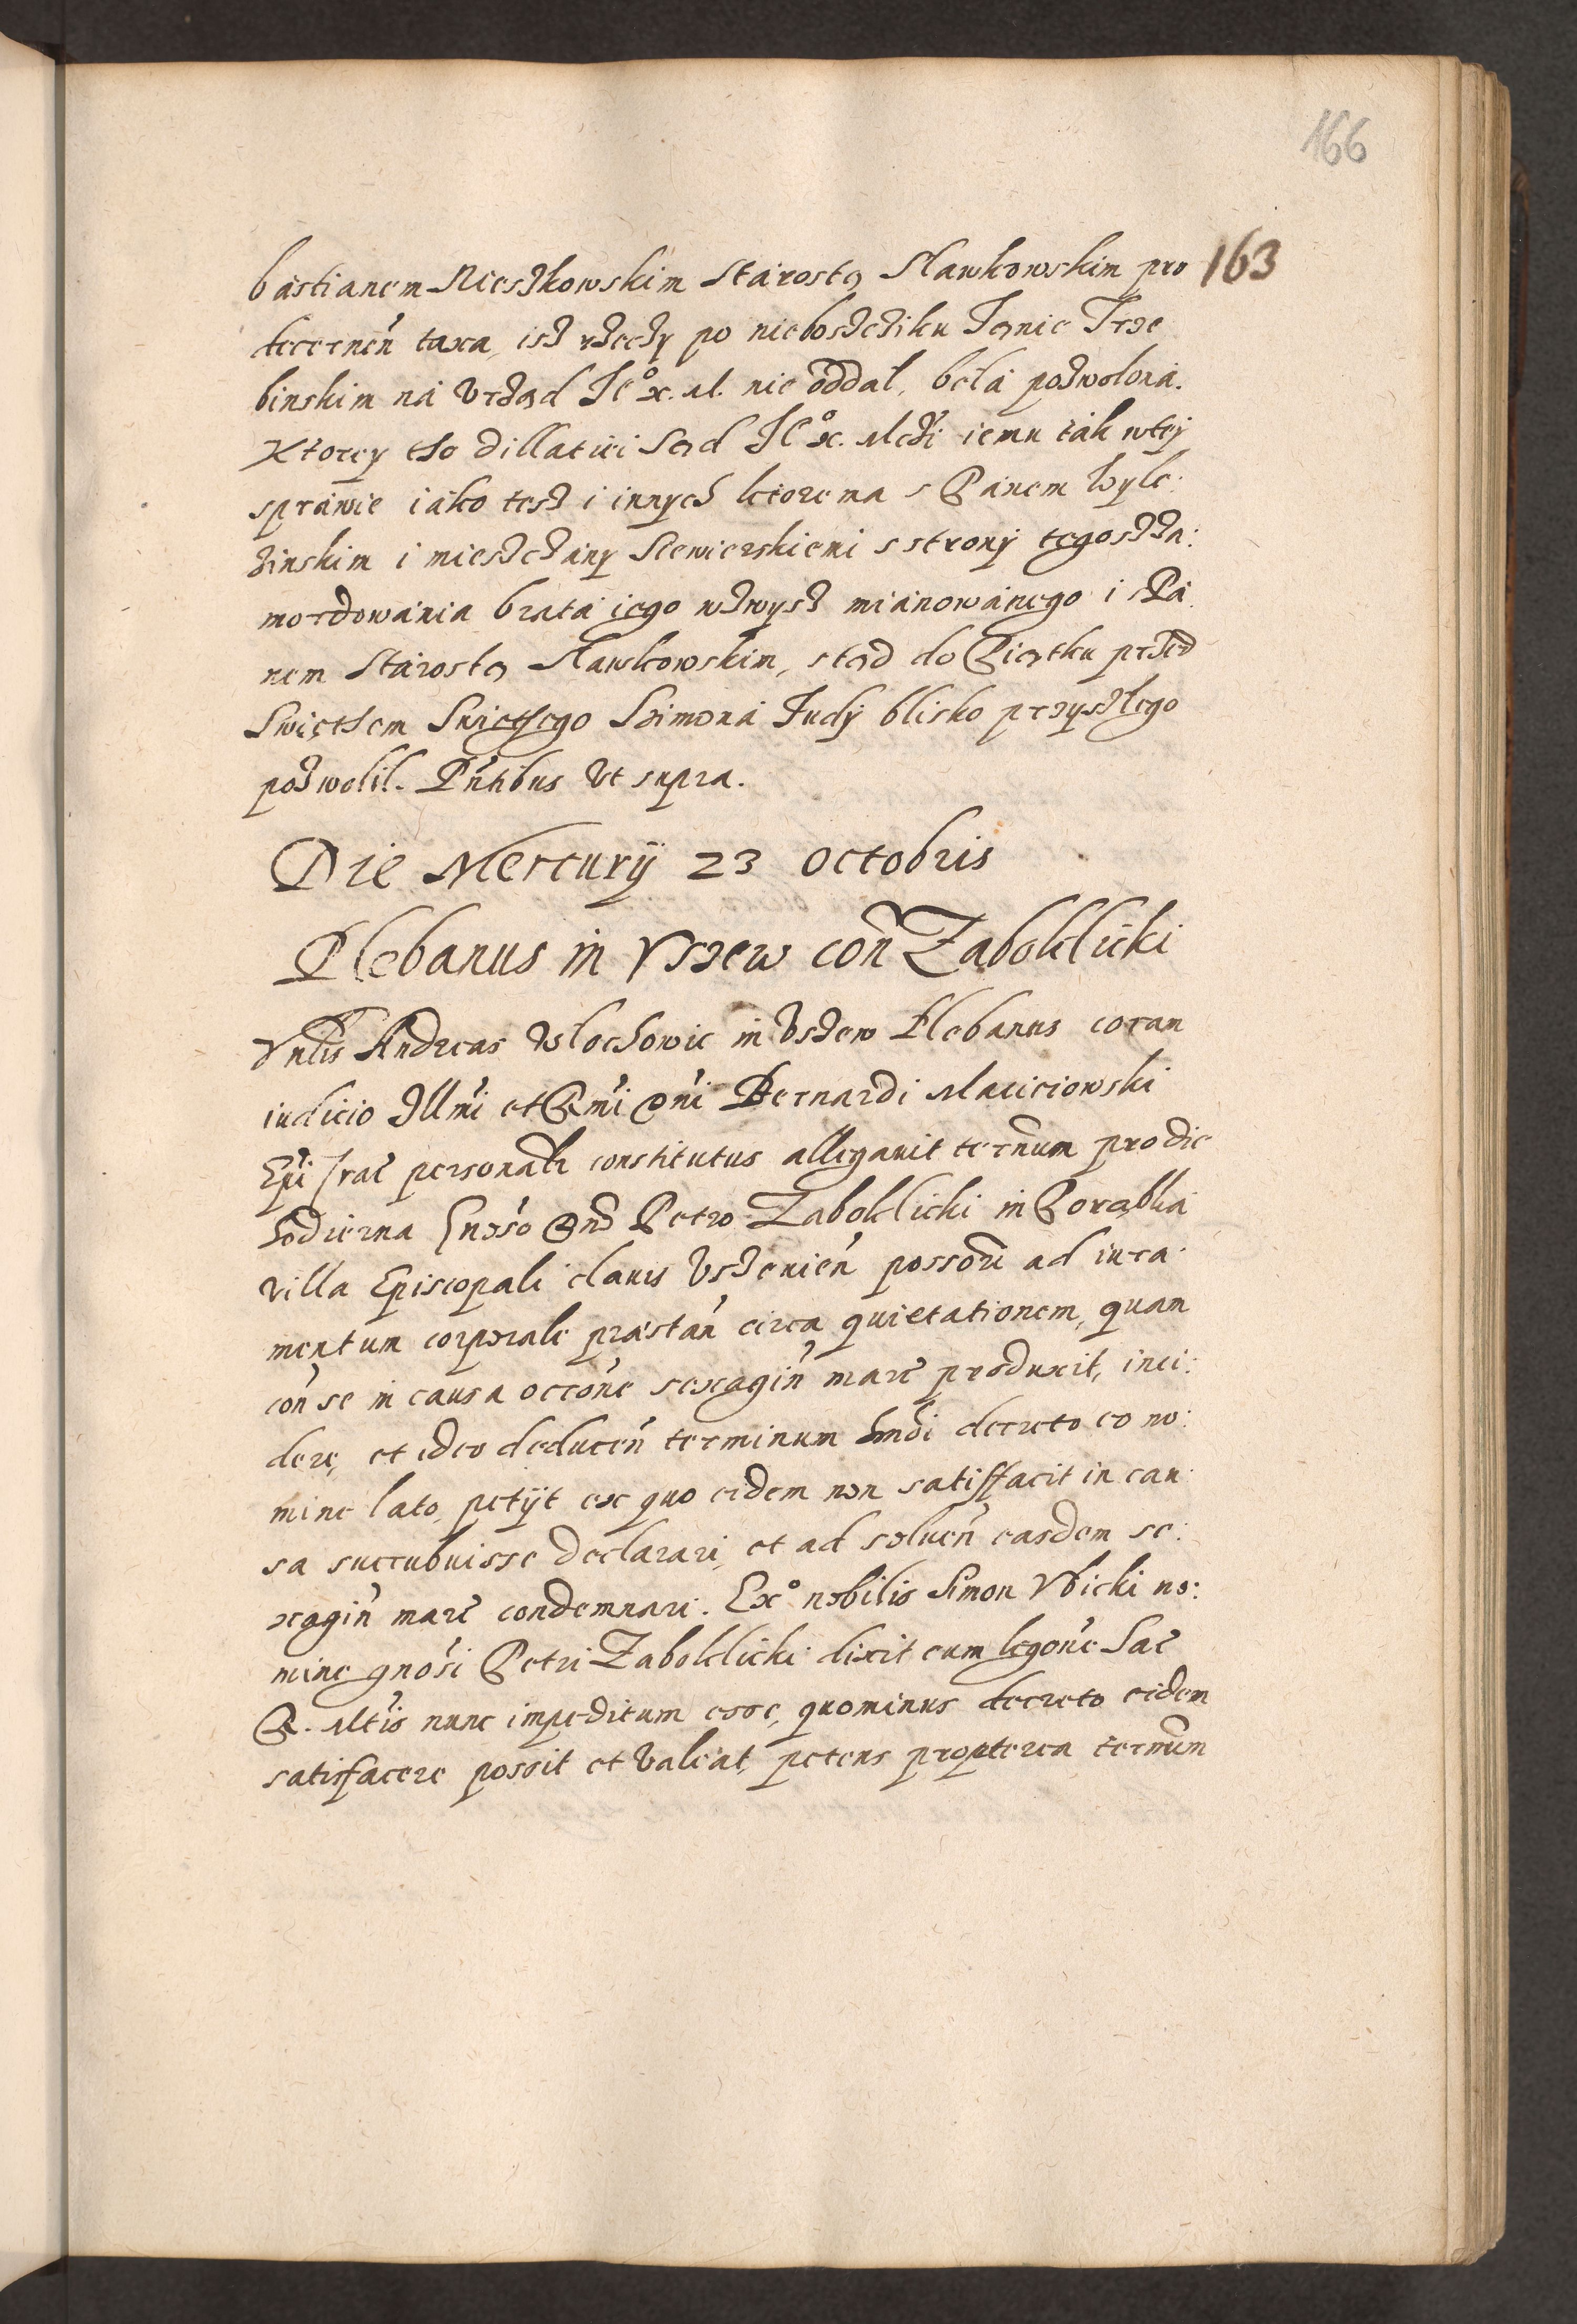 166
163
bastianem Nieszkowskim Starostą Slawkowskim pro
decernen̄ taxa, isz rzeczy po nieboszcziku Ianie Trze
binskim na Vrząd Ie° x. M. nie oddal, bela pozwolona.
Ktorey tho dillatiei Sąd Ie° x. Mczi iemu tak wtey
sprawie iako tesz i innych ktore ma s Panem Wyle:
zinskim i mieszczany Siewierskiemi s strony tegosz za:
mordowania brata iego wzwysz mianowanego i s Pa
nem Starostą Slawkowskim, stąd do Piątku przed
Swięthem Swięthego Szimona Iudy blisko przyszlego
pozwolil. Pn̄tibus Vt supra.
Die Mercurij 23 octobris
Plebanus in Vszew con̄ Zaboklicki
Vn̄lis Andreas Wlochowic in Vszew Plebanus coram
iudicio Illmi et Rmi Dni Bernardi Macieiowski
Epi Crac̄ personalr̄ constitutus allegauit termnum pro die
hodierna Gnoso Dno Petro Zaboklicki in Porąbka
villa Episcopali clauis Vszeuien̄ possori ad iura:
mentum corporale præstan̄ circa quietationem, quam
con̄ se in causa occone sexagin̄ marc̄ produxit, inci:
dere, et ideo deducen̄ terminum hmoi decreto eo no:
mine lato, petijt ex quo eidem non satisfacit in cau:
sa succubuisse declarari, et ad soluen̄ easdem se:
xagin̄ marc̄ condemnari. Ex° nobilis Simon Vbicki no:
mine gnosi Petri Zaboklicki dixit eum legone Sac̄
R. Mtis nunc impeditum esse, quominus decreto eidem
satisfacere possit et valeat, petens propterea termnum